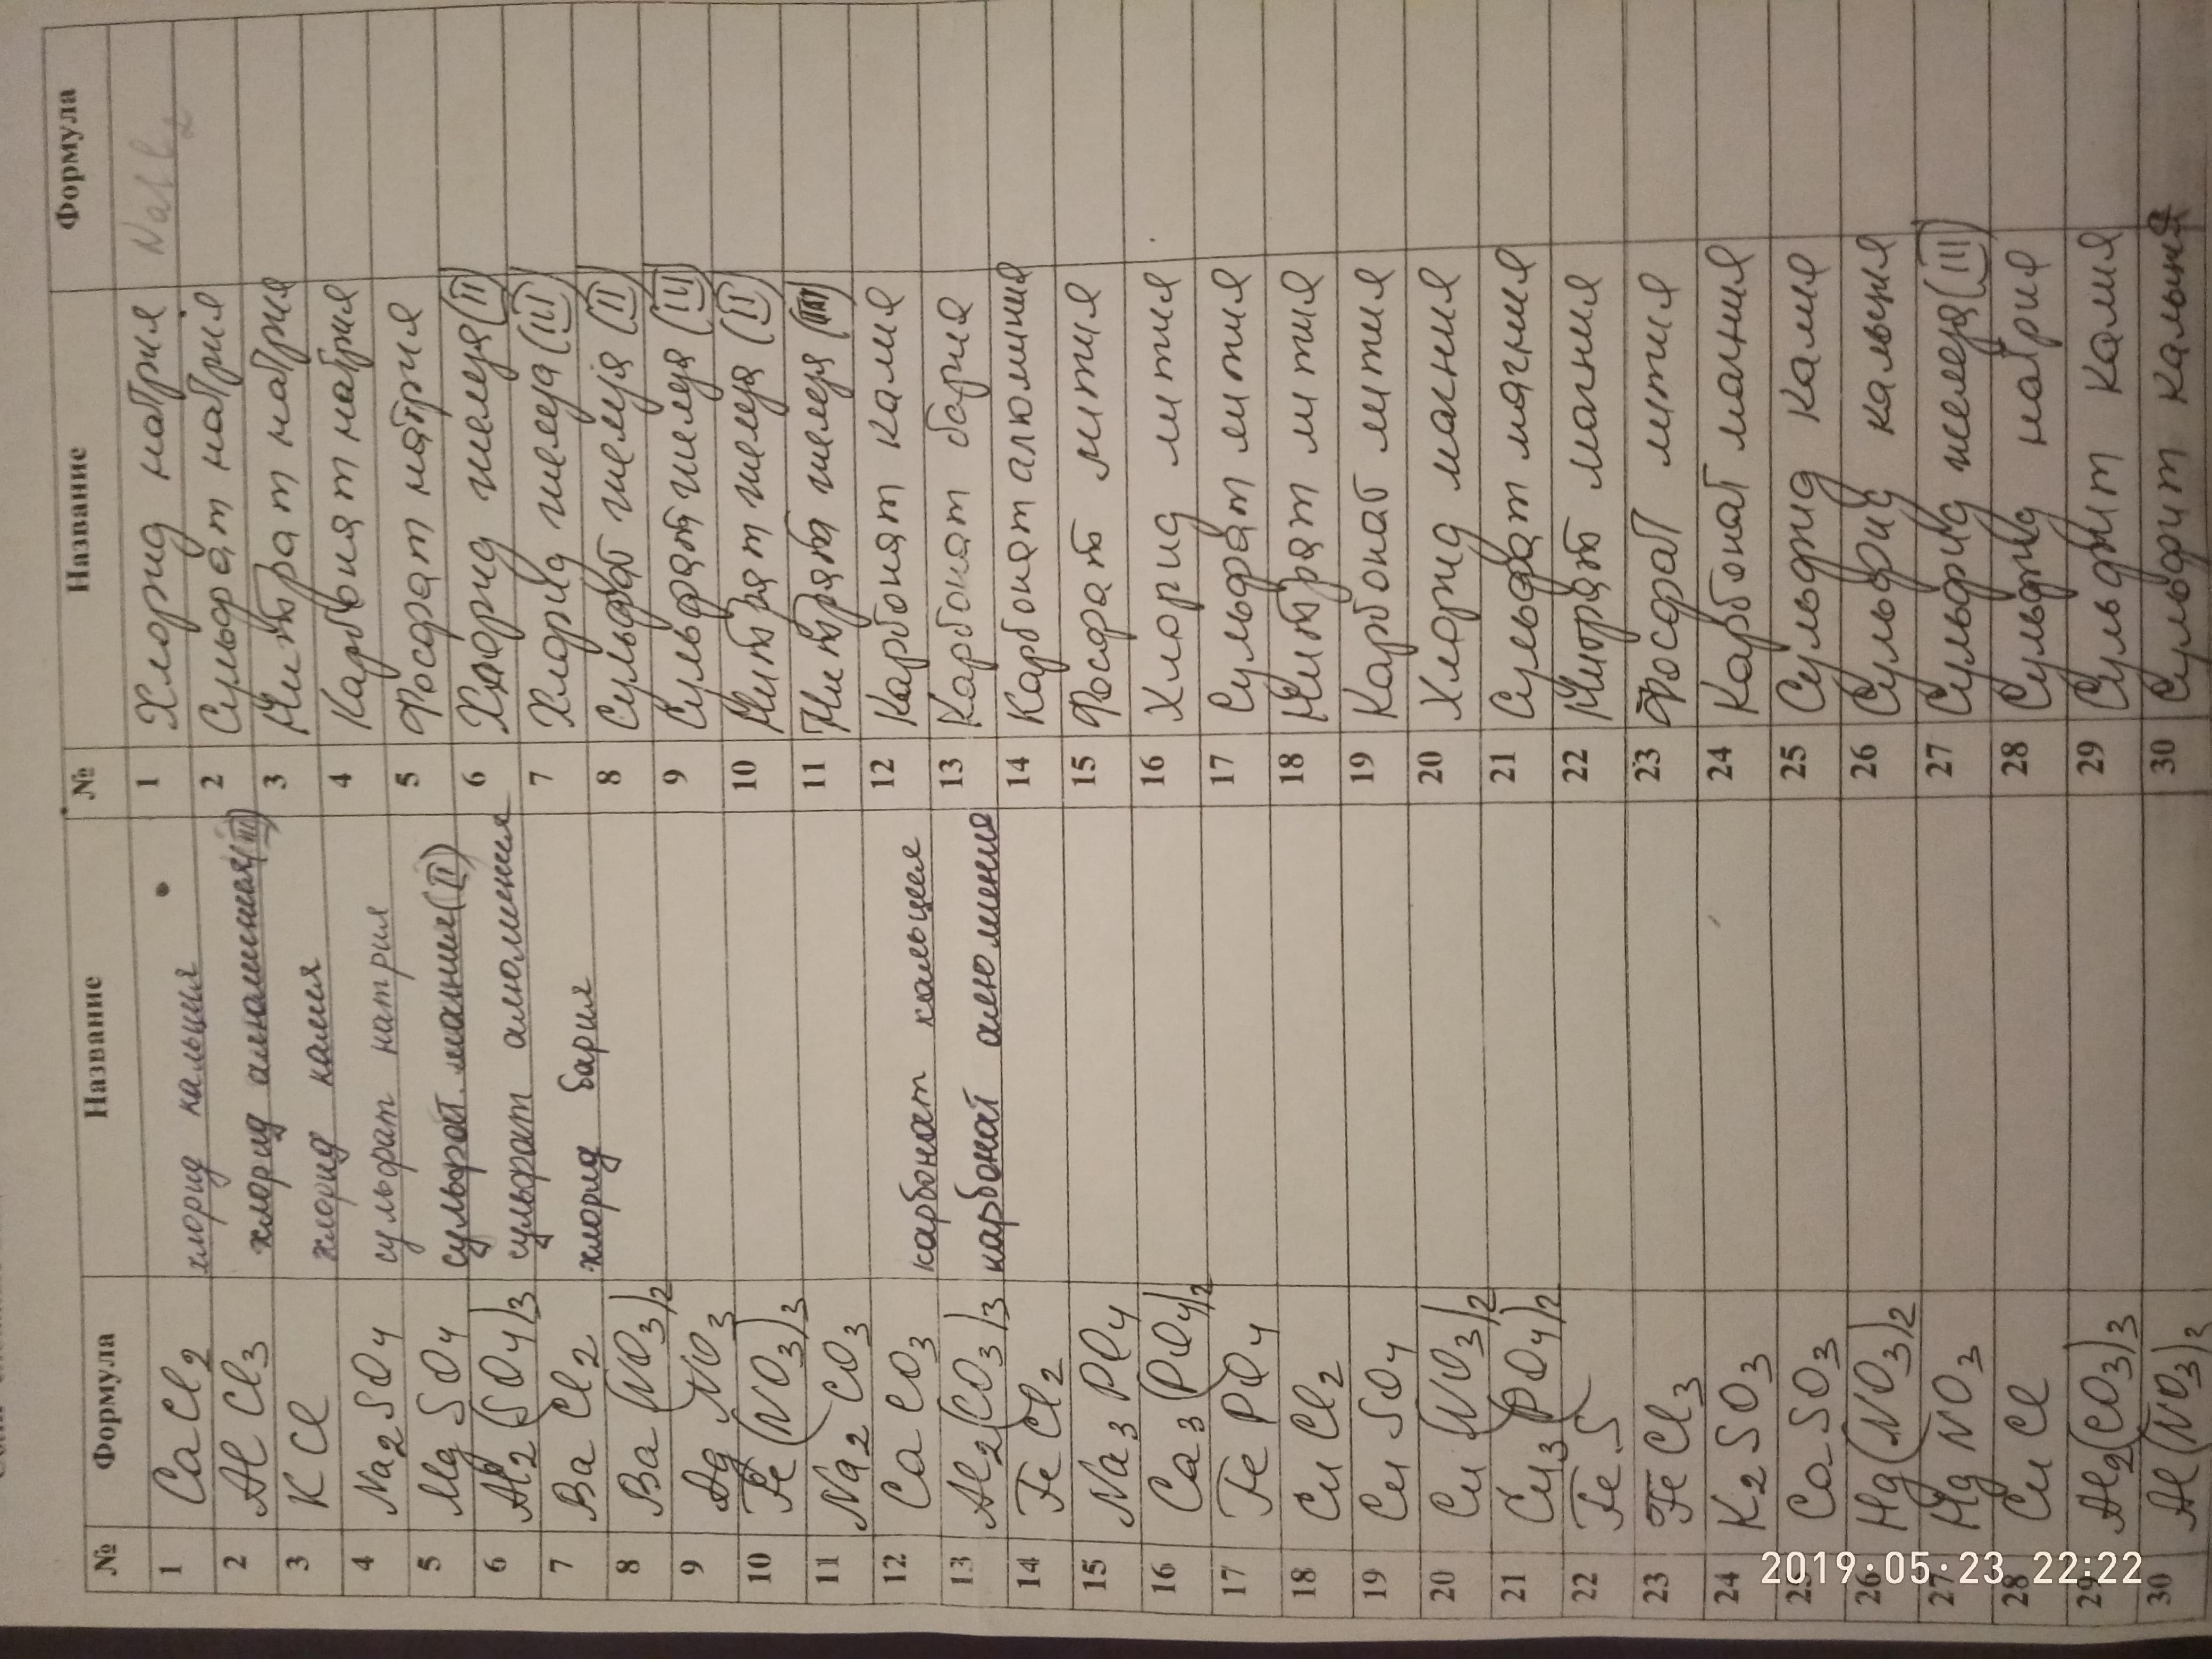 № Формула Название № Название Формула
1 CaCl2 хлорид кальция 1 Хлорид натрия
2 AlCl3 хлорид алюминия(III) 2 Сульфат натрия
3 KCl хлорид калия 3 Нитрат натрия
4 Na2SO4 сульфат натрия 4 Карбонат натрия
5 MgSO4 сульфат магния(II) 5 Фосфат натрия
6 Al2(SO4)3 сульфат алюминия 6 Хлорид железа(II)
7 BaCl2 хлорид бария 7 Хлорид железа(III)
8 Ba(NO3)2 8 Сульфат железа (II)
9 AgNO3 9 Сульфат железа (III)
10 Fe(NO3)3 10 Нитрат железа (II)
11 Na2CO3 11 Нитрат железа (III)
12 CaCO3 карбонат кальцея 12 Карбонат калия
13 Al2(CO3)3 карбонат алюминия 13 Карбонат бария
14 FeCl2 14 Карбонат алюминия
15 Na3PO4 15 Фосфат лития
16 Ca3(PO4)2 16 Хлорид лития
17 FePO4 17 Сульфат лития
18 CuCl2 18 Нитрат лития
19 CuSO4 19 Карбонат лития
20 Cu(NO3)2 20 Хлорид магния
21 Cu3(PO4)2 21 Сульфат магния
22 FeS 22 Нитрат магния
23 FeCl3 23 Фосфат лития
24 K2SO3 24 Карбонат магния
25 CaSO3 25 Сульфид калия
26 Hg(NO3)2 26 Сульфид кальция
27 HgNO3 27 Сульфид железа(III)
28 CuCl 28 Сульфид натрия
29 Al2(CO3)3 29 Сульфит калия
30 Al(NO3)3 30 Сульфит кальция
2019.05.23 22:22